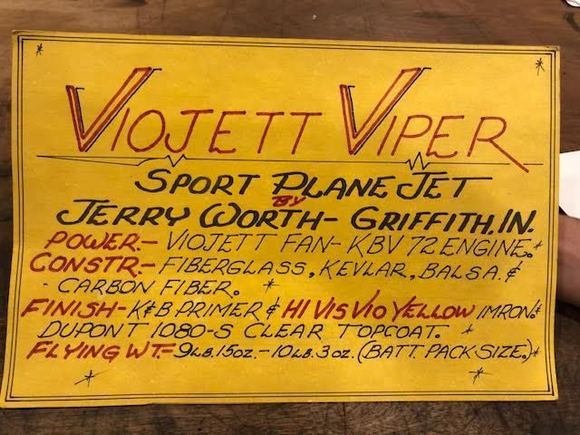 VIOJETT VIPER
SPORT PLANE JET
BY
JERRY WORTH- GRIFFITH, IN.
POWER- VIOJETT FAN- KBV 72 ENGINE.*
CONSTR- FIBERGLASS, KEVLAR, BALSA &
- CARBON FIBER. *
FINISH- K&B PRIMER & HI VIS VIO YELLOW IMRON &
DUPONT 1080-S CLEAR TOPCOAT. *
FLYING WT= 9LB. 15OZ. - 10LB. 3 OZ. (BATT. PACK SIZE.)*